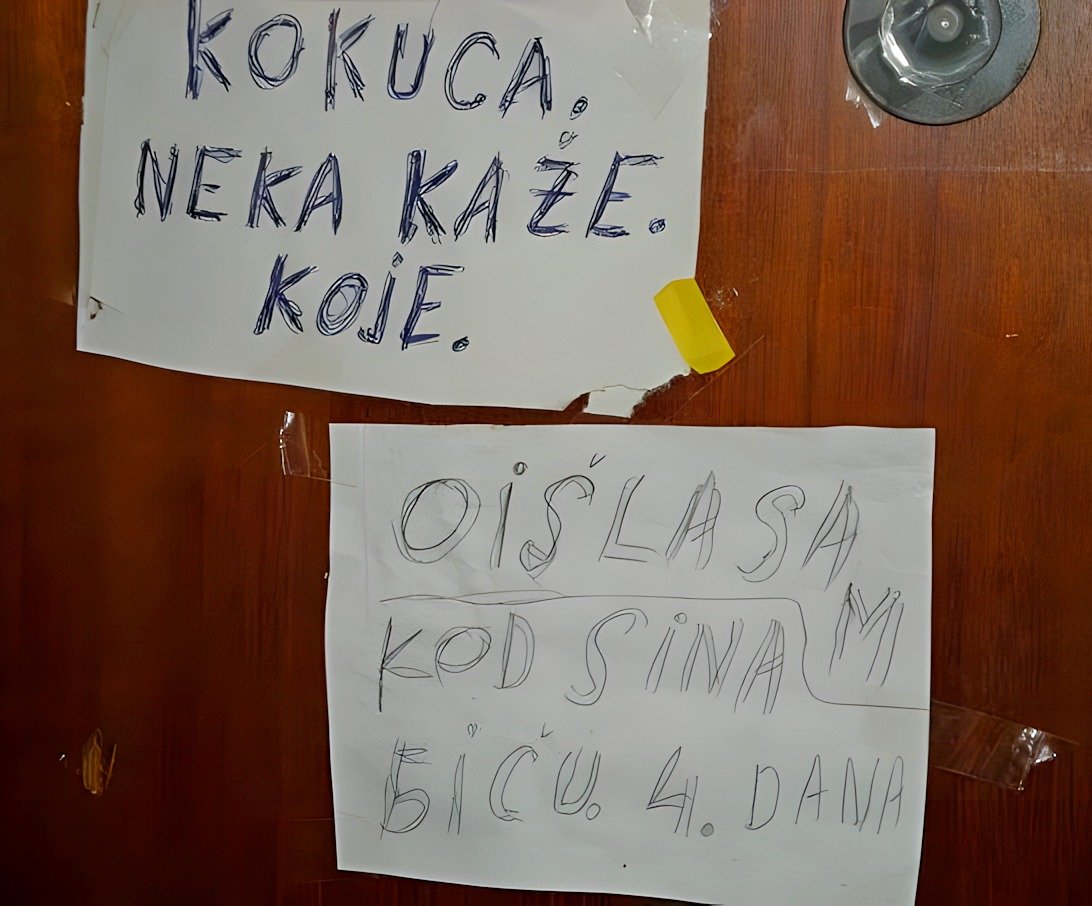 KOKUCA.
NEKA KAŽE.
KOJE.
OIŠLA SAM
KOD SINA
BIČU. 4. DANA